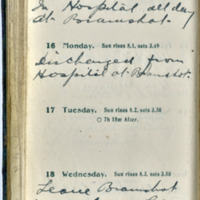 In Hospital all day
at Bramshot.
16 Monday. Sun rises 8.1, sets 3.49
Discharged from
Hospital at Bramshot.
17 Tuesday. Sun rises 8.2, sets 3.50
7h 18m After.
18 Wednesday. Sun rises 8.2, sets 3.50
Leave Bramshot